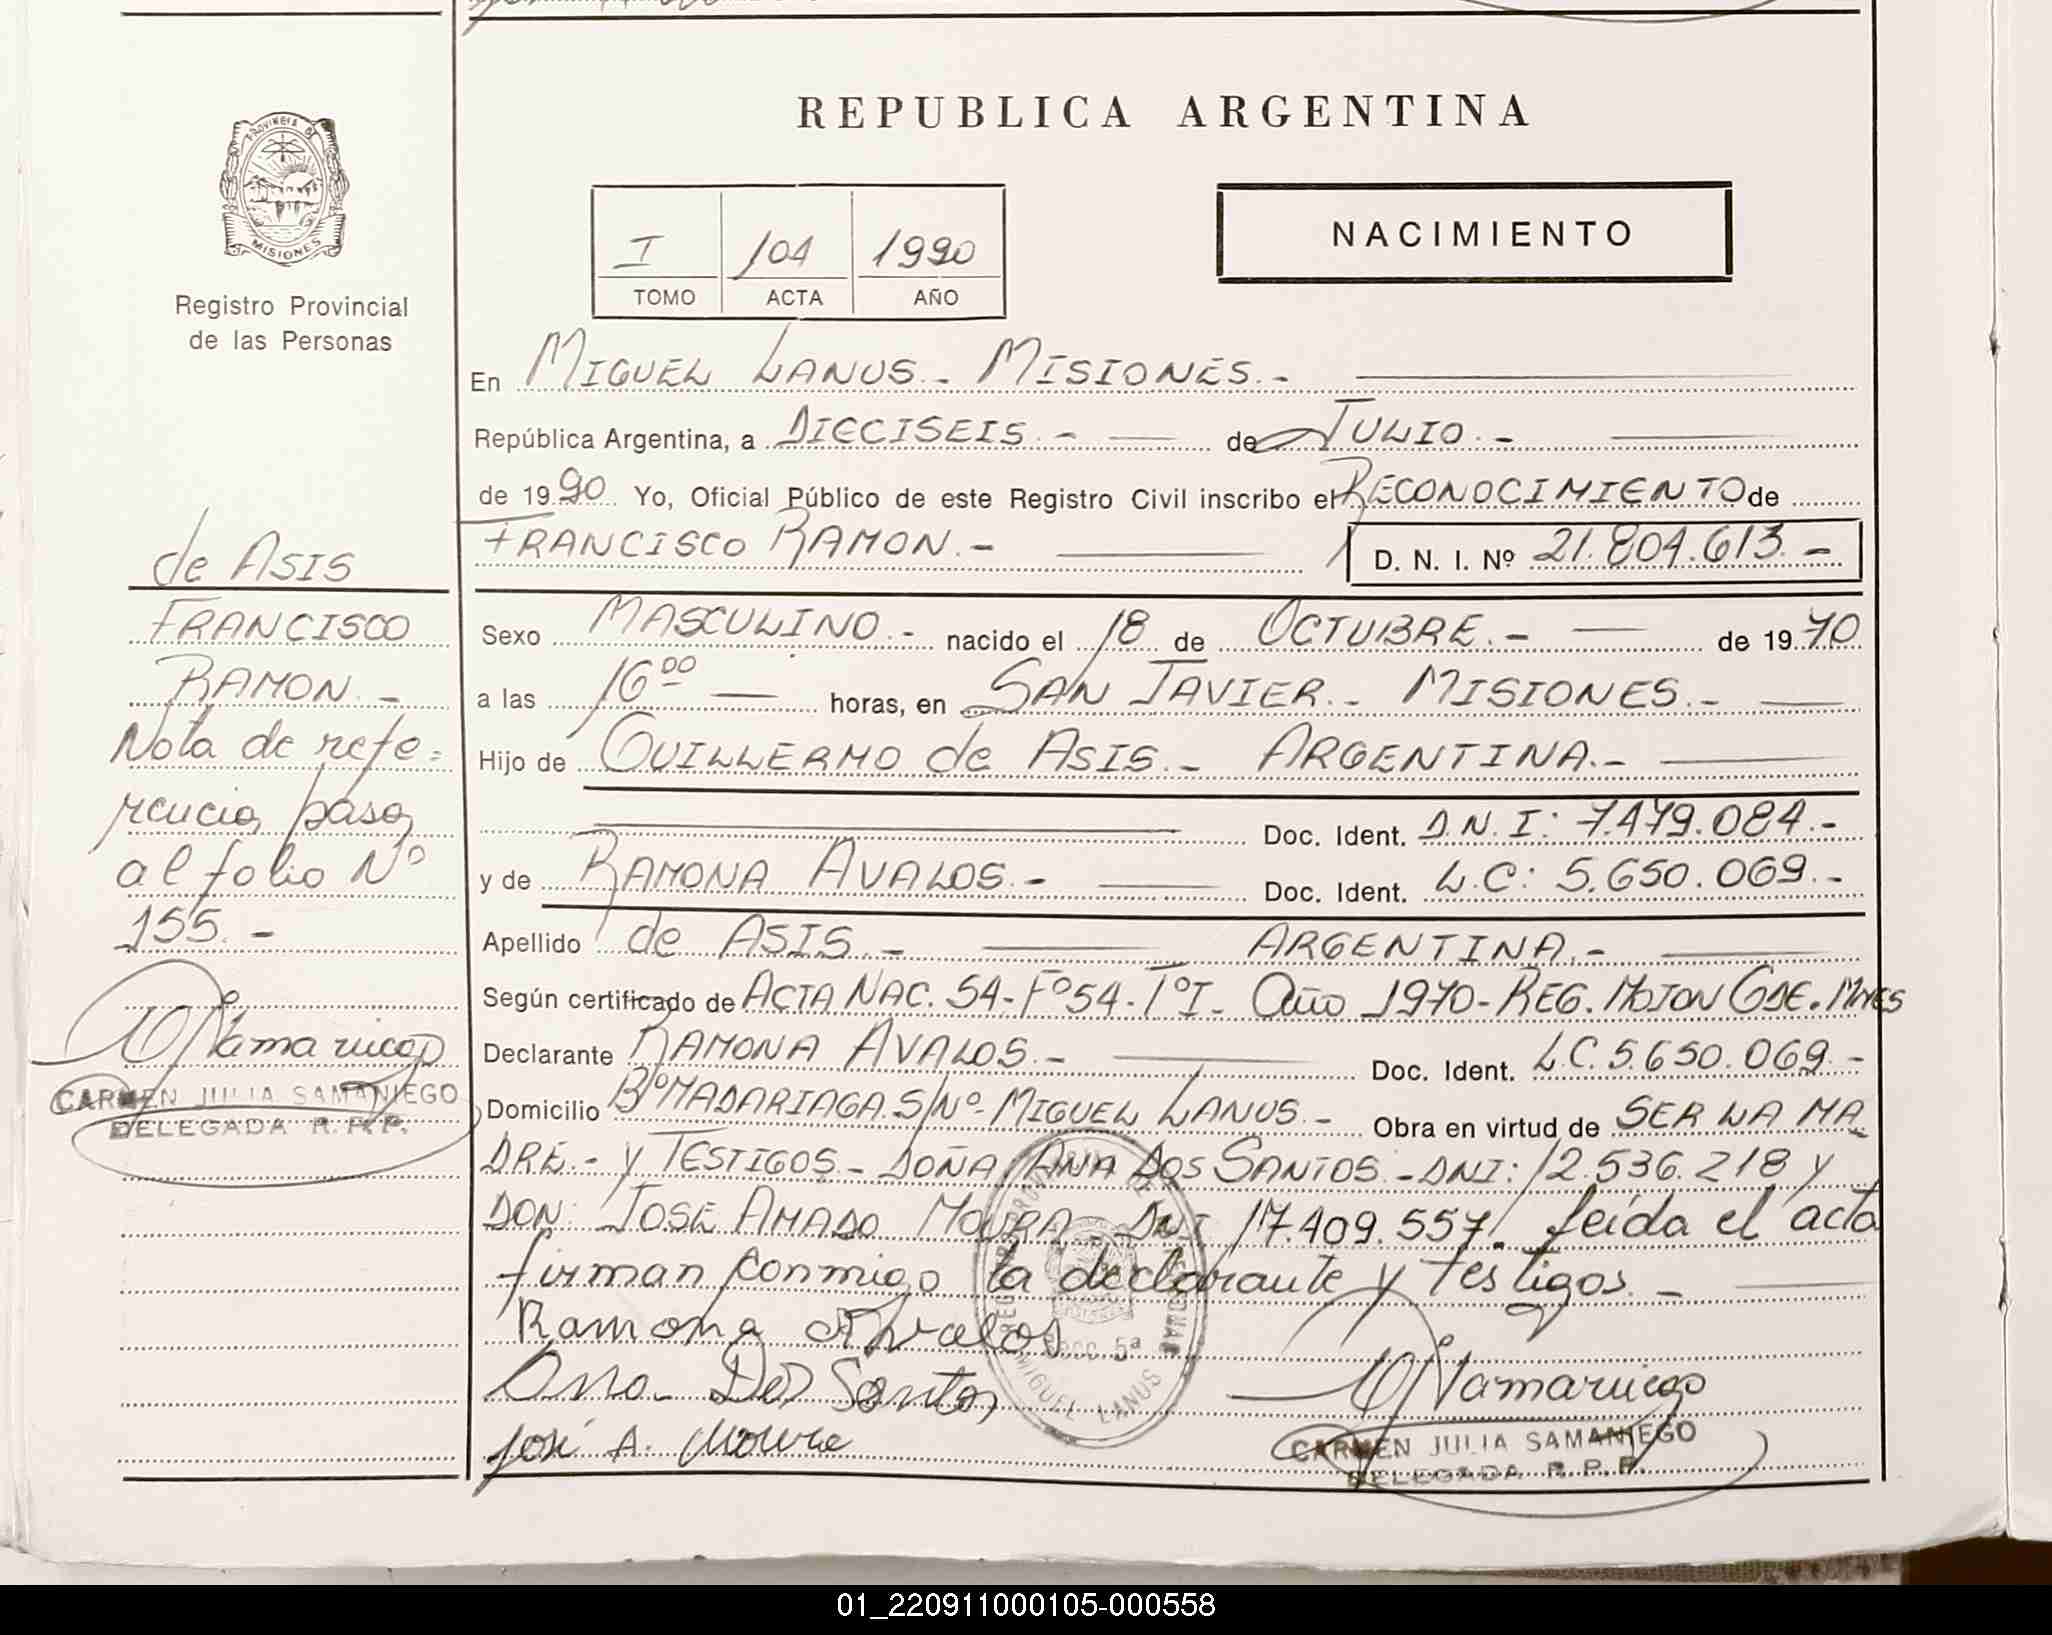 REPUBLICA ARGENTINA
PROVINCIA DE
MISIONES
Registro Provincial
de las Personas
I 104 1990
TOMO ACTA AÑO
NACIMIENTO
En MIGUEL LANUS.- MISIONES.-
República Argentina, a DIECISEIS.- de JULIO.-
de 1990 Yo, Oficial Público de este Registro Civil inscribo el RECONOCIMIENTO de
FRANCISCO RAMON.- D. N. I. Nº 21.804.613.-
Sexo MASCULINO.- nacido el 18 de OCTUBRE.- de 1970
a las 16⁰⁰ horas, en SAN JAVIER.- MISIONES.-
Hijo de GUILLERMO de ASIS.- ARGENTINA.-
Doc. Ident. D.N.I: 7.479.084.-
y de RAMONA AVALOS.- Doc. Ident. L.C: 5.650.069.-
Apellido de ASIS.- ARGENTINA.-
Según certificado de ACTA NAC. 54-Fº54-TºI- Año 1970-REG. MOJON GDE. MNES
Declarante RAMONA AVALOS.- Doc. Ident. L.C. 5.650.069.-
Domicilio Bº MADARIAGA. S/Nº- MIGUEL LANUS.- Obra en virtud de SER LA MA
DRE.- Y TESTIGOS.- DOÑA ANA DOS SANTOS.- DNI: 12.536.218 y
DON: JOSE AMADO MOURA- DNI 17.409.557. leida el acta
firman conmigo la declarante y testigos.-
Ramona Avalos
Ana Dos Santos
José A. Moura
CARMEN JULIA SAMANIEGO
DELEGADA R.P.P.
MIGUEL LANUS
de ASIS
FRANCISCO
RAMON.-
Nota de refe=
rencia pasa
al folio Nº
155.-
CARMEN JULIA SAMANIEGO
DELEGADA R.P.P.
01_220911000105-000558